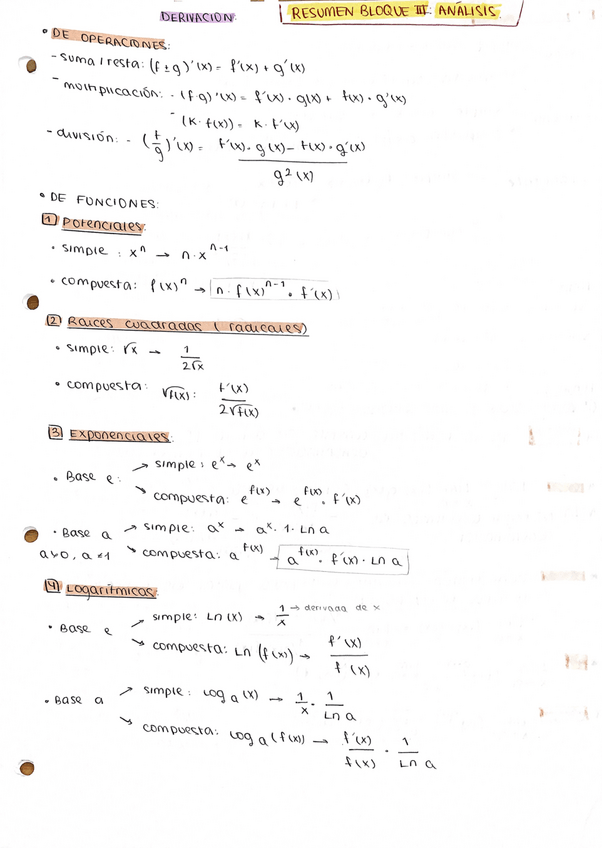 DERIVACIÓN:
RESUMEN BLOQUE III: ANÁLISIS.
• DE OPERACIONES:
- suma/resta: (f ± g)'(x) = f'(x) + g'(x)
- multiplicación: - (f·g)'(x) = f'(x) · g(x) + f(x) · g'(x)
- (K · f(x)) = K · f'(x)
- división: - (f/g)'(x) = f'(x) · g(x) - f(x) · g'(x) / g²(x)
• DE FUNCIONES:
1 Potenciales:
• simple: xⁿ → n·xⁿ⁻¹
• compuesta: f(x)ⁿ → n · f(x)ⁿ⁻¹ · f'(x)
2 Raíces cuadradas (radicales)
• simple: √x → 1/2√x
• compuesta: √f(x) : f'(x)/2√f(x)
3 Exponenciales:
• Base e:
→ simple: eˣ → eˣ
↘ compuesta: e^f(x) → e^f(x) · f'(x)
• Base a → simple: aˣ → aˣ · 1 · Ln a
a>0, a≠1 ↘ compuesta: a^f(x) → a^f(x) · f'(x) · Ln a
4 Logarítmicos:
• Base e → simple: Ln (x) → 1/x → derivada de x
↘ compuesta: Ln (f(x)) → f'(x)/f(x)
• Base a → simple: Log a (x) → 1/x · 1/Ln a
↘ compuesta: Log a (f(x)) → f'(x)/f(x) · 1/Ln a